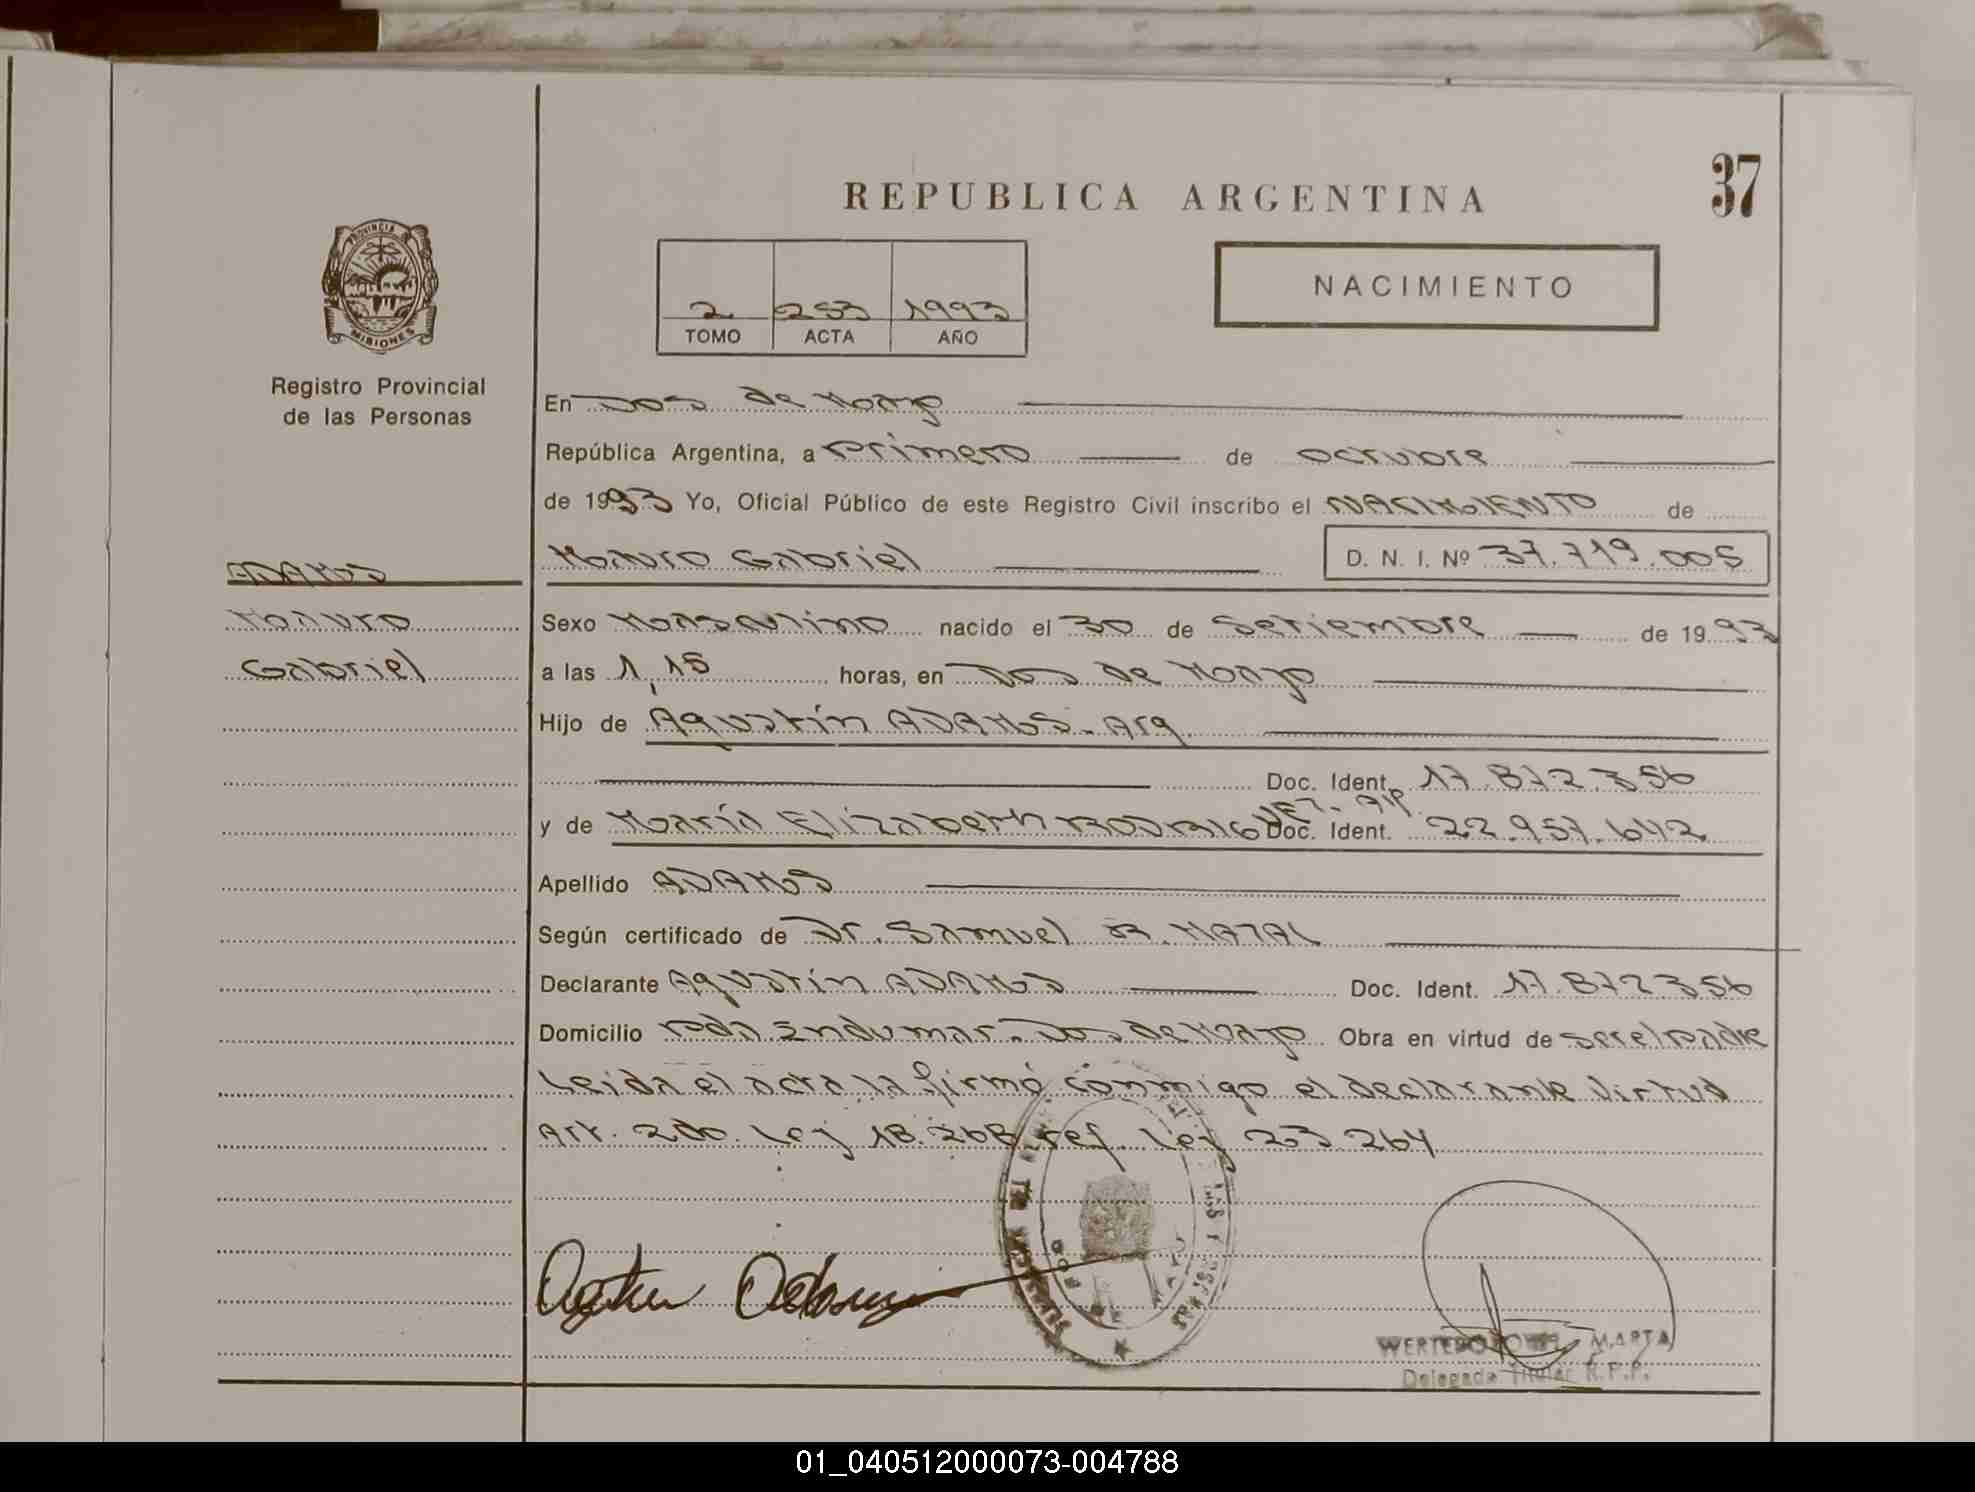 37
REPUBLICA ARGENTINA
NACIMIENTO
2 253 1993
TOMO ACTA AÑO
PROVINCIA DE
MISIONES
Registro Provincial
de las Personas
En Dos de Mayo
República Argentina, a primero de octubre
de 1993 Yo, Oficial Público de este Registro Civil inscribo el NACIMIENTO de
Mauro Gabriel D. N. I. Nº 37.719.005
ADAMS
Mauro
Gabriel
Sexo Masculino nacido el 30 de Setiembre de 1993
a las 1,15 horas, en Dos de Mayo
Hijo de Agustín ADAMS. Arg.
Doc. Ident. 17.872.356
y de María Elizabeth RODRIGUEZ. Arg. Doc. Ident. 22.957.642
Apellido ADAMS
Según certificado de Dr. Samuel
Declarante Agustín ADAMS Doc. Ident. 17.872356
Domicilio Dos de Mayo Obra en virtud de ser el padre
Leida el acta la firmó conmigo el declarante Virtud
Art. 2do. Ley 18.268 ref. Ley 23.264
MARTA
Delegada Titular R.P.P.
01_040512000073-004788